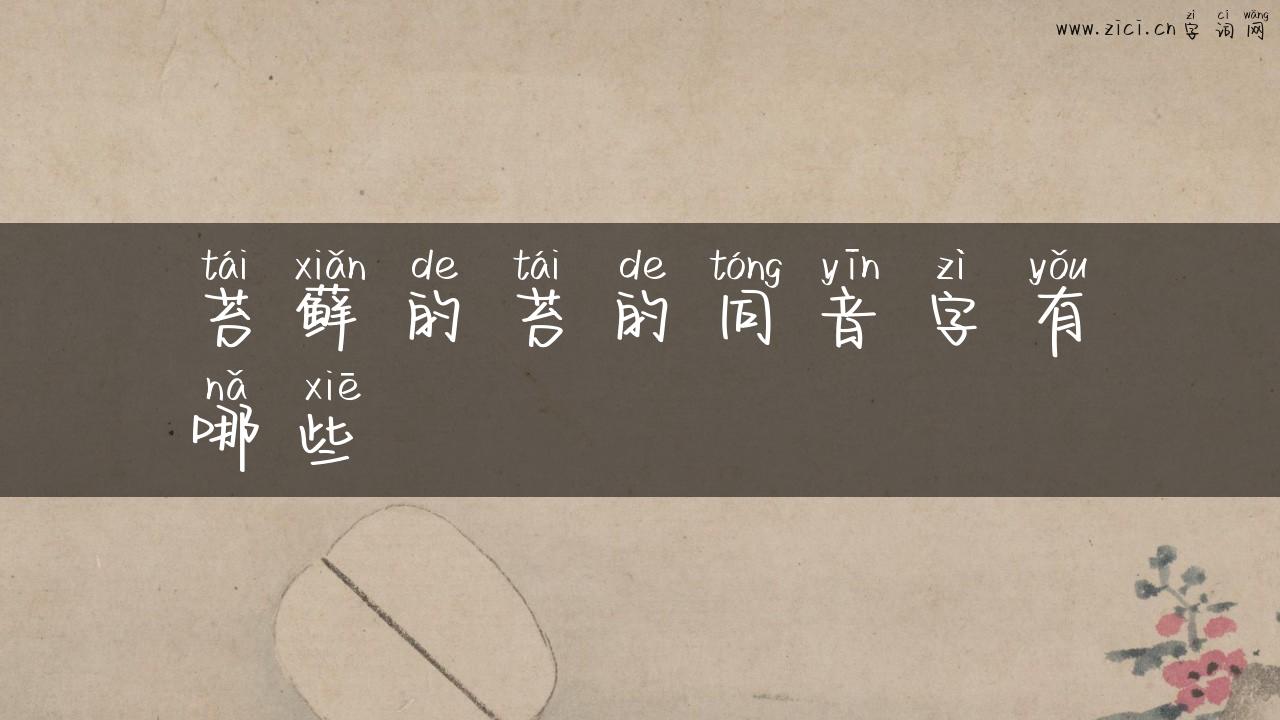 zì cí wǎng
www.zici.cn字词网
tái xiǎn de tái de tóng yīn zì yǒu
苔藓的苔的同音字有
nǎ xiē
哪些